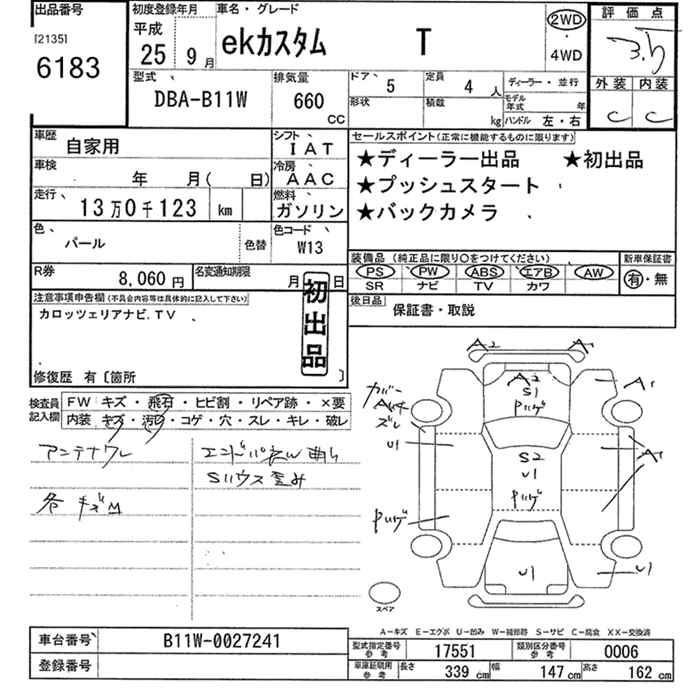 出品番号
[2135]
6183
初度登録年月
平成
25年 9月
車名・グレード
ekカスタム T
2WD
・
4WD
評価点
3.5
外装 内装
C C
型式
DBA-B11W
排気量
660
CC
ドア 5
定員 4人
ディーラー・並行
形状
積載 kg
モデル年式 年
ハンドル 左・右
車歴 自家用
シフト IAT
車検 年 月( 日)
冷房 AAC
走行 13万0千123 km
燃料 ガソリン
色 パール
色替
色コード W13
R券 8,060円
名変通知期限 月 日
セールスポイント(正常に機能するものに限ります)
★ディーラー出品 ★初出品
★プッシュスタート
★バックカメラ
装備品(純正品に限り○をつけてください)
PS PW ABS エアB AW
SR ナビ TV カワ
新車保証書
有・無
後日品 保証書・取説
注意事項申告欄(不具合内容等は具体的に記入して下さい)
カロッツェリアナビ.TV
初出品
修復歴 有〔箇所 〕
検査員記入欄
FW キズ・飛石・ヒビ割・リペア跡・×要
内装 キズ・汚れ・コゲ・穴・スレ・キレ・破レ
アンテナワレ
各キズM
Sハウス歪み
A2
A1
A2
S1
Pハゲ
A1
カバー
ズレ
U1
S2
U1
Pハゲ
A1
Pハゲ
U1
U1
スペア
A-キズ E-エクボ U-凹み W-補修跡 S-サビ C-腐食 XX-交換済
車台番号 B11W-0027241
登録番号
型式指定番号 参考 17551
類別区分番号 参考 0006
車庫証明用 参考 長さ 339cm 幅 147cm 高さ 162cm